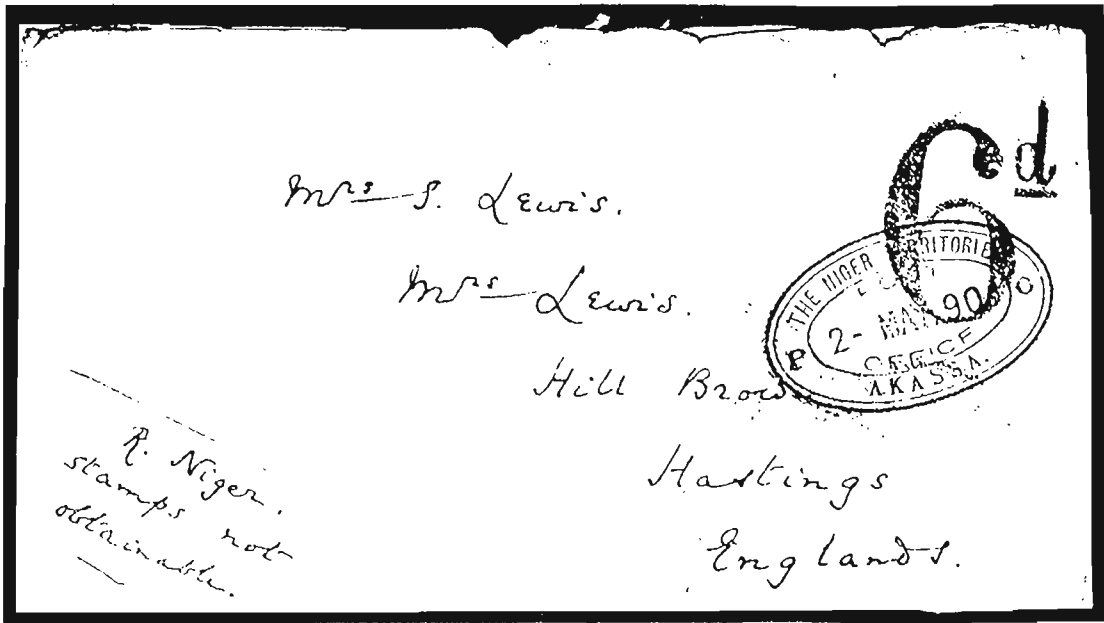 6d
Mrs S. Lewis.
Mrs Lewis.
Hill Brow
Hastings
England.
THE NIGER TERRITORIES
POST
2- MAY 90
OFFICE
AKASSA.
P O
R. Niger.
stamps not
obtainable.